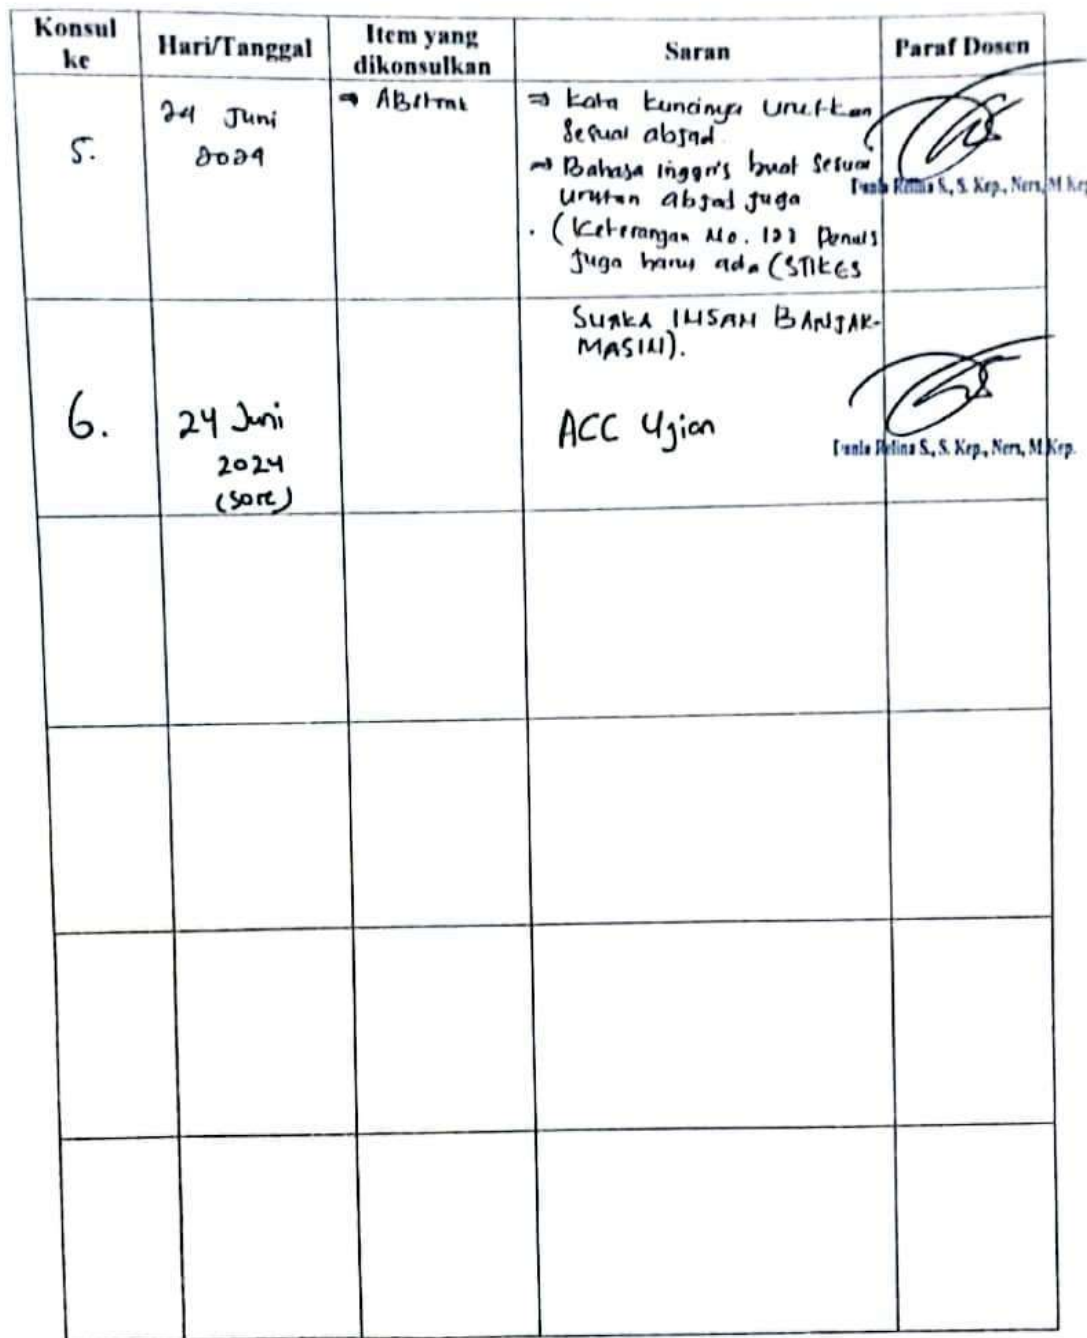 Konsul ke
Hari/Tanggal
Item yang dikonsulkan
Saran
Paraf Dosen
5.
24 Juni
2024
⇒ ABstrak
⇒ Kata kuncinya urutkan
Sesuai abjad.
⇒ Bahasa inggris buat Sesuai
urutan abjad juga
. (Keterangan No. 123 Penulis
Juga harus ada (STIKES
S., S. Kep., Ners, M.Kep
SUAKA INSAN BANJAR-
MASIN).
6.
24 Juni
2024
(sore)
ACC Ujian
S., S. Kep., Ners, M.Kep.